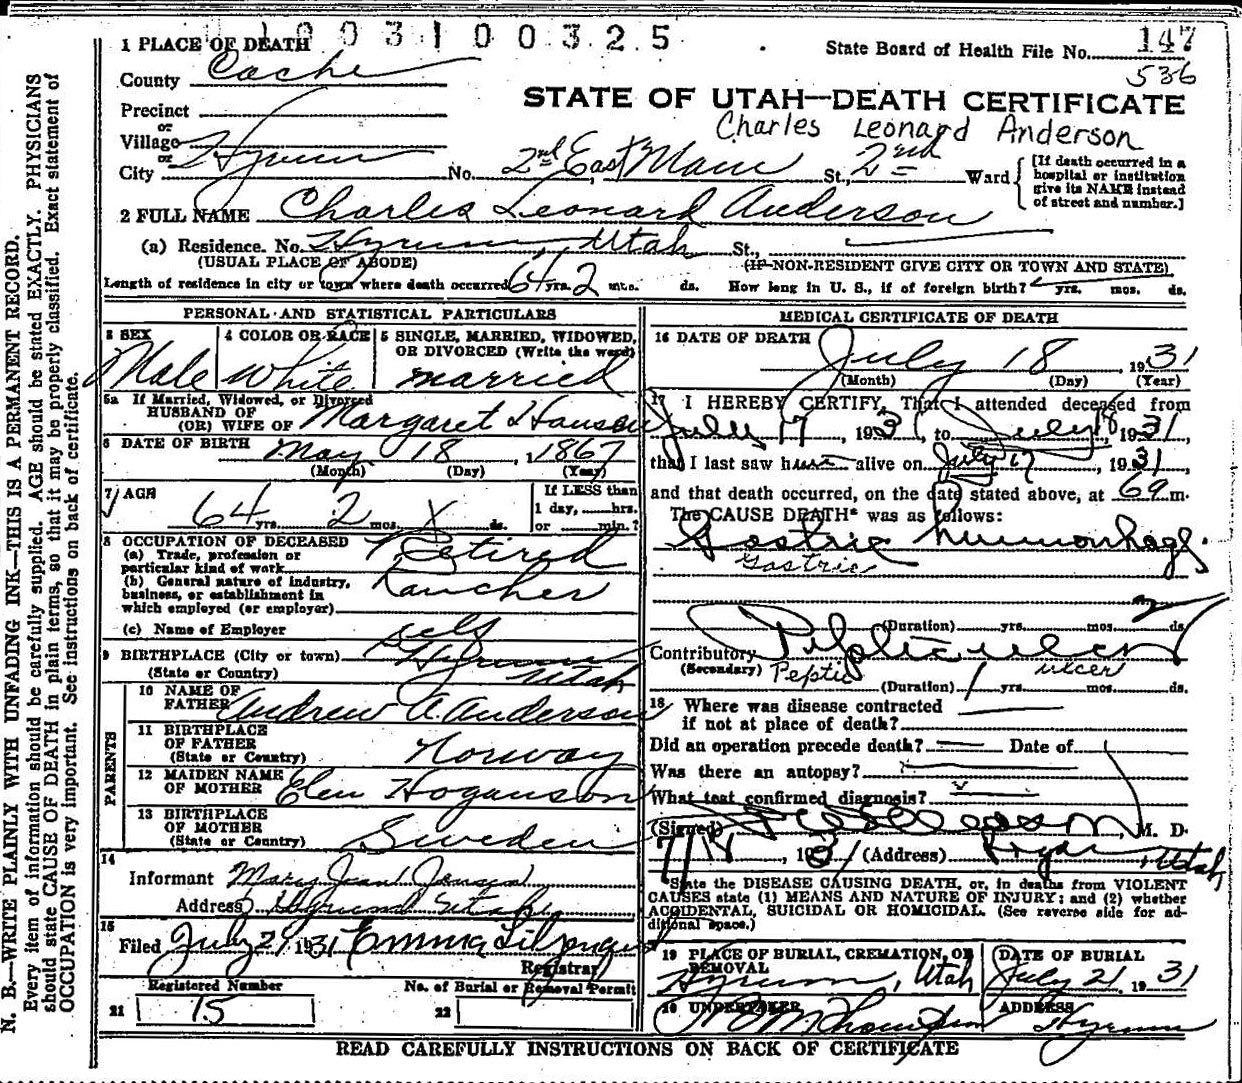 1003100325
State Board of Health File No. 147
536
1 PLACE OF DEATH
County Cache
STATE OF UTAH—DEATH CERTIFICATE
Charles Leonard Anderson
Precinct
or
Village
or
City Hyrum No. 2nd East Main St., 2nd Ward
[If death occurred in a hospital or institution give its NAME instead of street and number.]
2 FULL NAME Charles Leonard Anderson
(a) Residence. No. Hyrum, Utah St.,
(USUAL PLACE OF ABODE) (IF NON-RESIDENT GIVE CITY OR TOWN AND STATE)
Length of residence in city or town where death occurred 64 yrs. 2 mos. ds. How long in U. S., if of foreign birth? yrs. mos. ds.
PERSONAL AND STATISTICAL PARTICULARS
3 SEX Male
4 COLOR OR RACE White
5 SINGLE, MARRIED, WIDOWED, OR DIVORCED (Write the word) married
5a If Married, Widowed, or Divorced
HUSBAND OF
(OR) WIFE OF Margaret Hansen
6 DATE OF BIRTH May 18, 1867
(Month) (Day) (Year)
7 AGE 64 yrs. 2 mos. X ds.
If LESS than 1 day, hrs. or min.?
8 OCCUPATION OF DECEASED
(a) Trade, profession or particular kind of work Retired
(b) General nature of industry, business, or establishment in which employed (or employer) Rancher
(c) Name of Employer self
9 BIRTHPLACE (City or town) Hyrum
(State or Country) Utah
PARENTS
10 NAME OF FATHER Andrew A. Anderson
11 BIRTHPLACE OF FATHER (State or Country) Norway
12 MAIDEN NAME OF MOTHER Elen Hoganson
13 BIRTHPLACE OF MOTHER (State or Country) Sweden
14
Informant Mary Jean Jensen
Address Hyrum Utah
15
Filed July 21 1931 Emma Liljenquist
Registrar
Registered Number No. of Burial or Removal Permit
21 15 22
MEDICAL CERTIFICATE OF DEATH
16 DATE OF DEATH July 18, 1931
(Month) (Day) (Year)
17 I HEREBY CERTIFY, That I attended deceased from
July 17, 1931, to July 18 1931,
that I last saw him alive on July 17, 1931,
and that death occurred, on the date stated above, at 6 a m.
The CAUSE DEATH* was as follows:
Gastric hemorrhage.
Gastric
(Duration) yrs. mos. 2 ds.
Contributory Peptic ulcer
(Secondary) Peptic ulcer
(Duration) 1 yrs. mos. ds.
18 Where was disease contracted
if not at place of death?
Did an operation precede death? Date of
Was there an autopsy?
What test confirmed diagnosis?
(Signed) , M. D.
, 1931 (Address) Hyrum, Utah
*State the DISEASE CAUSING DEATH, or, in deaths from VIOLENT
CAUSES state (1) MEANS AND NATURE OF INJURY; and (2) whether
ACCIDENTAL, SUICIDAL OR HOMICIDAL. (See reverse side for ad-
ditional space.)
19 PLACE OF BURIAL, CREMATION, OR REMOVAL Hyrum, Utah
DATE OF BURIAL July 21, 1931
20 UNDERTAKER
ADDRESS Hyrum
READ CAREFULLY INSTRUCTIONS ON BACK OF CERTIFICATE
N. B.—WRITE PLAINLY WITH UNFADING INK—THIS IS A PERMANENT RECORD.
Every item of information should be carefully supplied. AGE should be stated EXACTLY. PHYSICIANS
should state CAUSE OF DEATH in plain terms, so that it may be properly classified. Exact statement of
OCCUPATION is very important. See instructions on back of certificate.